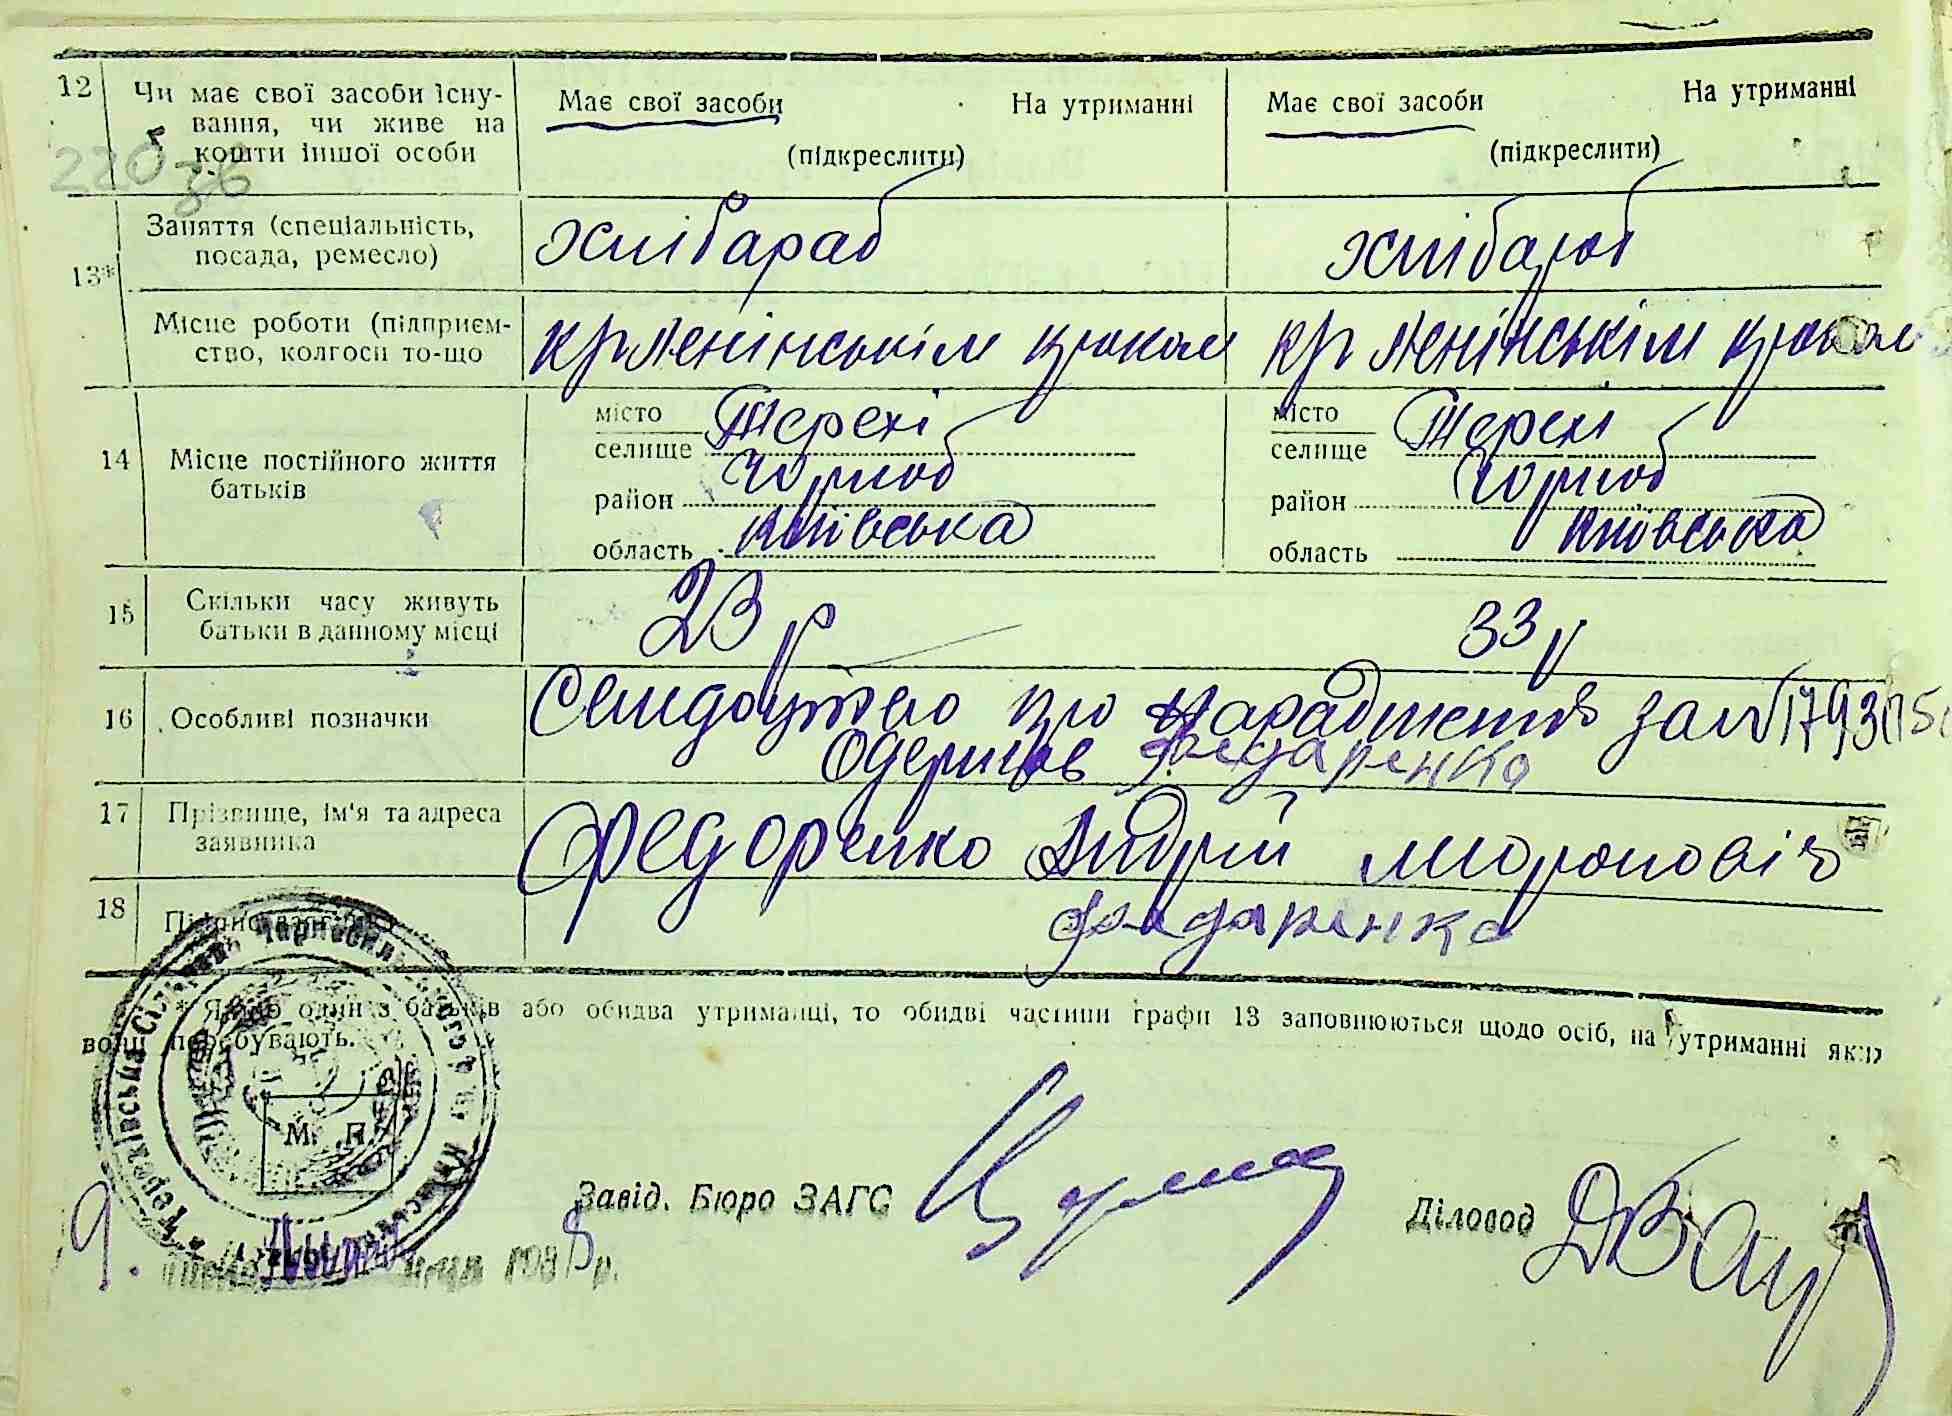 12 Чи має свої засоби існу-
вання, чи живе на
кошти іншої особи
Має свої засоби На утриманні
(підкреслити)
Має свої засоби На утриманні
(підкреслити)
220 36
13* Заняття (спеціальність,
посада, ремесло)
хлібараб
хлібароб
Місце роботи (підприєм-
ство, колгосп то-що
Ленінськім
Ленінськім
14 Місце постійного життя
батьків
місто
селище Терехі
район Чорноб
область київська
місто
селище Терехі
район Чорноб
область київська
15 Скільки часу живуть
батьки в данному місці
23 р
33 р
16 Особливі позначки
про народження за № 1793115
Одержав Федаренко
17 Прізвище, ім'я та адреса
заявника
Федоренко Андрій Мироновіч
18 Підпис заявника
Федаренко
* Якщо один з батьків або обидва утриманці, то обидві частини графи 13 заповнюються щодо осіб, на утриманні яких
вони перебувають.
Терехівська Сільрада Чорнобильського р-ну Київської
М. П.
Завід. Бюро ЗАГС
Діловод
9.